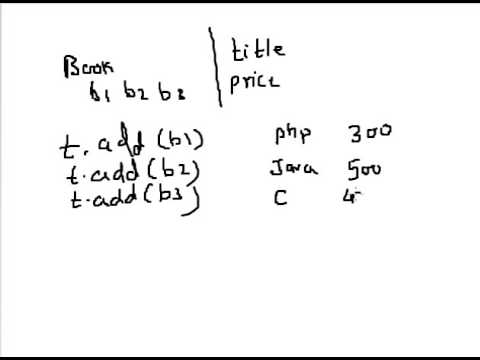 Book
b1 b2 b3
title
price
t.add(b1) php 300
t.add(b2) Java 500
t.add(b3) C 4